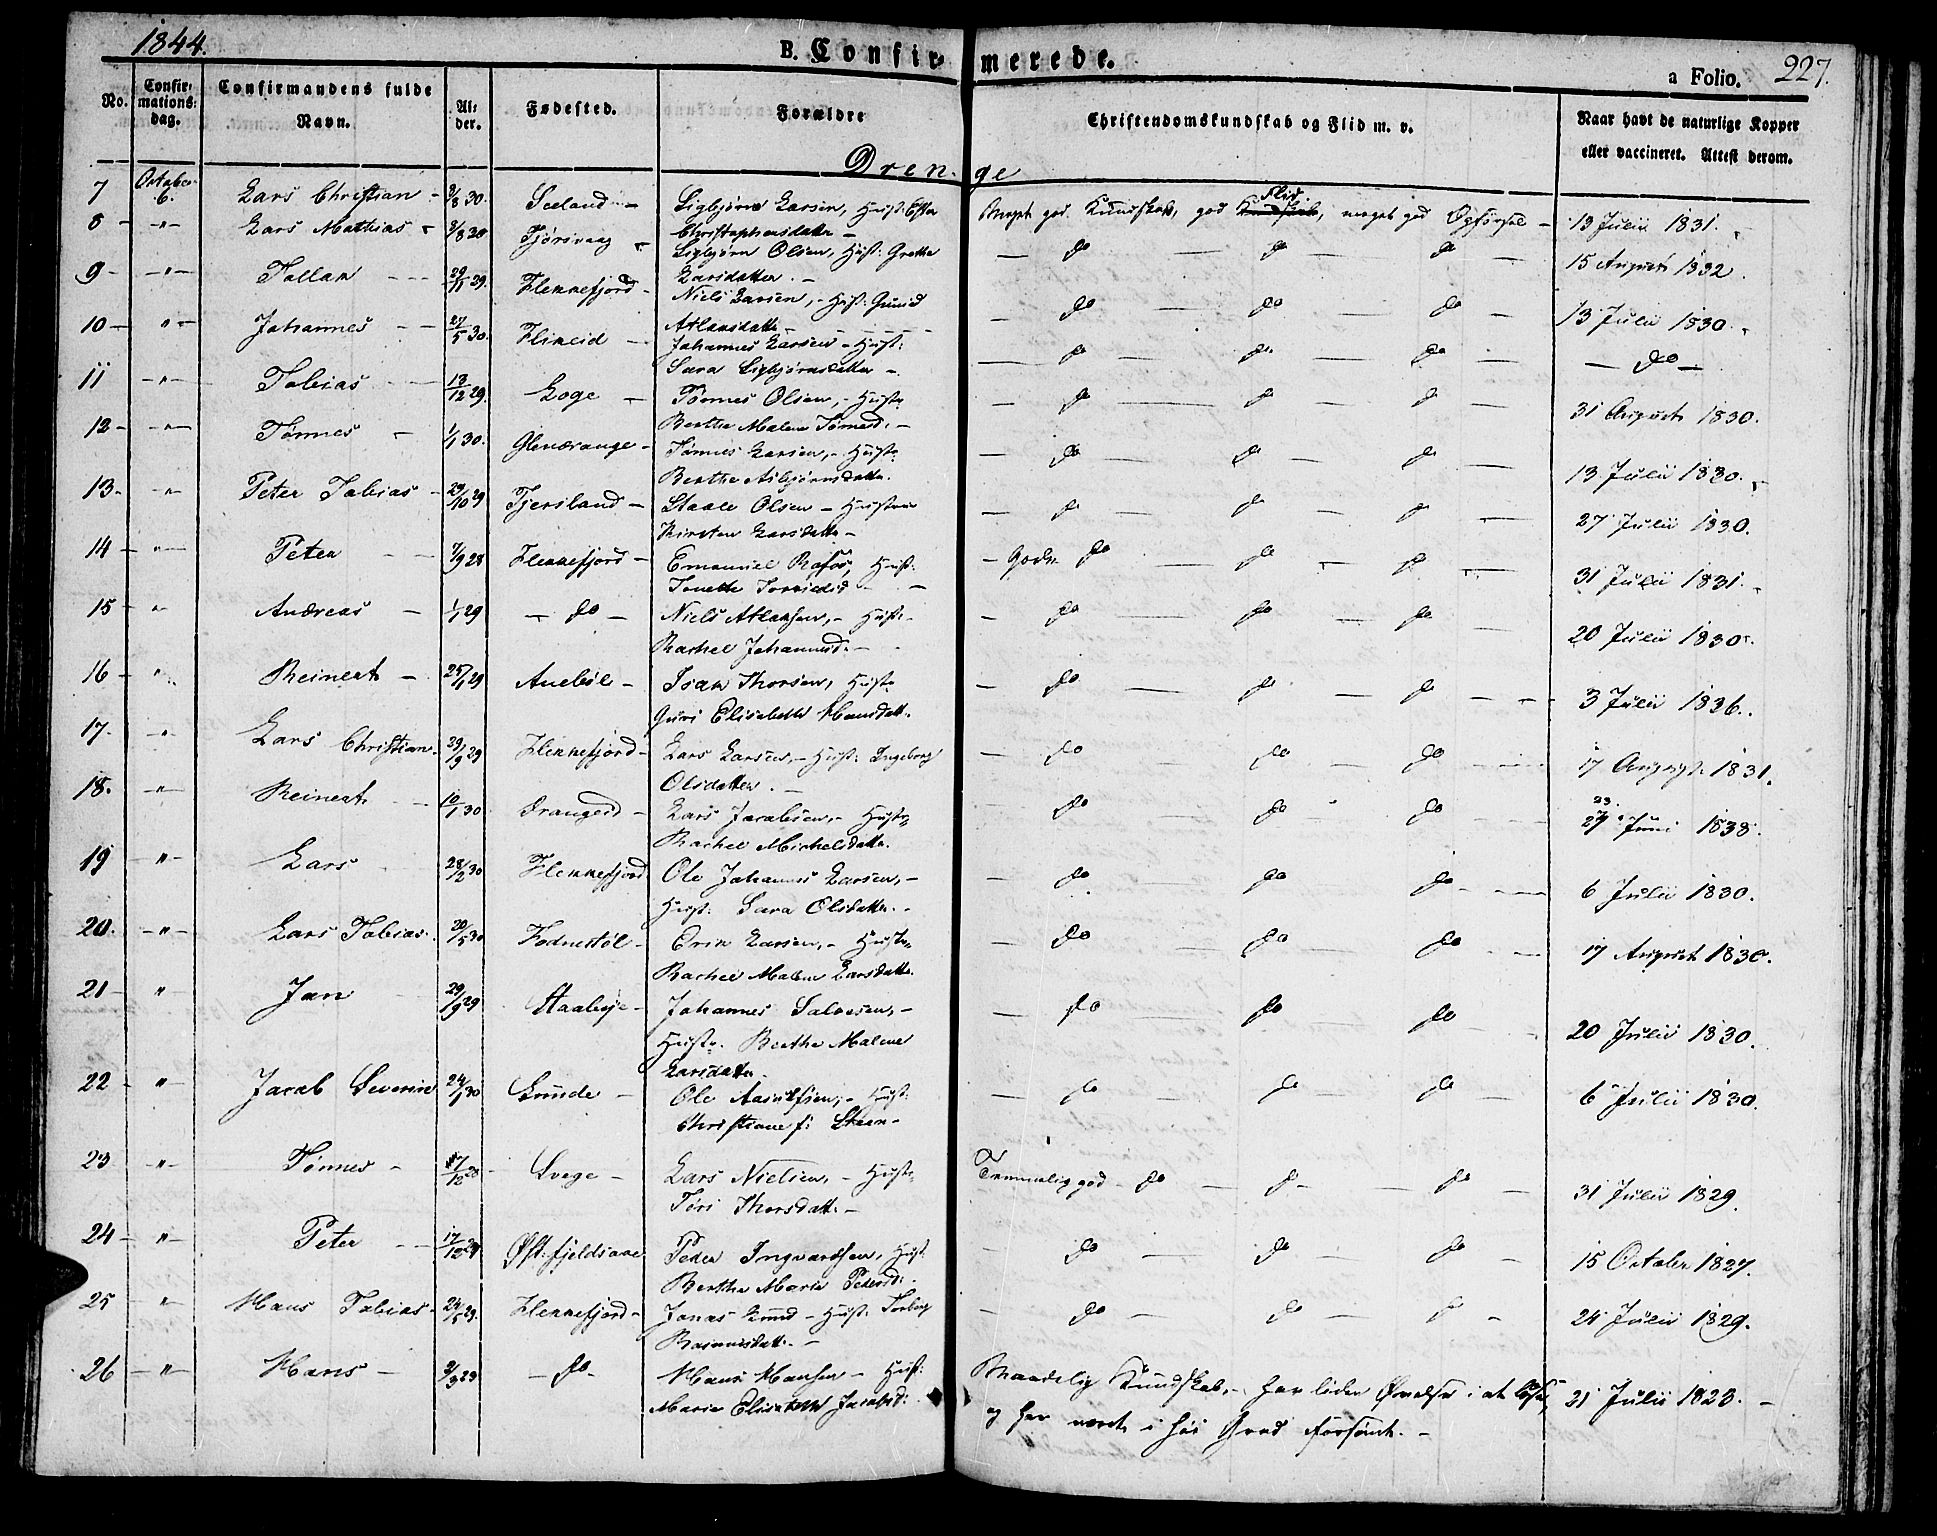 1844.
B. Confirmerede.
a Folio. 227.
No. Confirmations: dag. Confirmandens fulde Navn. Alder. Fødested. Forældre Christendomskundskab og Flid m. v. Naar havt de naturlige Kopper eller vaccineret. Attest derom.
Drenge
7 October 6. Lars Christian - 3/8 30. Seeland - Sigbjørn Larsen, Hust: Ester Meget god Kundskab, god Flid, meget god Opførsel - 13 Julii 1831.
Christophersdatter -
8 - " - Lars Mathias - 3/8 30 Fjørsvaag - Sigbjørn Olsen, Hust: Grethe - do - do - do - 15 August 1832.
Larsdatter. -
9 - " - Tallak - 29/11 29. Flekkefjord - Niels Larsen, - Hust: Gunild - do - do - do - 13 Julii 1830.
Atlaksdatter -
10 - " - Johannes - 27/5 30. Flikeid - Johannes Larsen - Hust: - do - do - do - - do -
Sara Sigbjørnsdatter -
11 - " - Tobias - 13/12 29. Loge - Tønnes Olsen, - Hustr: - do - do - do - 31 August 1830.
Berthe Malene Tønnesd: -
12 - " - Tønnes - 1/1 30. Glendrange - Tønnes Larsen, - Hustr: - do - do - do - 13 Julii 1830.
Berthe Asbjørnsdatter.
13. - " - Peter Tobias - 29/10 29 Tjersland - Staale Olsen - Hustrue - do - do - do - 27 Julii 1830.
Kirsten Larsdatter -
14 - " - Peter - 7/9 28 Flekkefjord - Emanuel Rafos, Hust: - Godk do - do - do - 31 Julii 1831.
Tonette
15 - " - Andreas - 1/1 29 - do - Niels Atlaksen, - Hust: - do - do - do - 20 Julii 1830.
Rachel Johannesd: -
16 - " - Reinert - 25/1 29 Aneböl - Isak Thorsen, Hustr: - do - do - do - 3 Julii 1836.
Guri Elisabeth Hansdatt.
17. - " Lars Christian. 29/9 29 Flekkefjord - Lars Larsen, - Hust: Ingeborg - do - do - do - 17 August 1831.
Olsdatter. -
18. - " - Reinert - 10/1 30 Drangeid - Lars Jacobsen, - Hustr: - do - do - do - 23. 27 Juni 1838.
Rachel Michelsdatter.
19 - " - Lars 28/2 30 Flekkefjord Ole Johannes Larsen, - - do - do - do - 6 Julii 1830.
Hust: Sara Olsdatter. -
20. - " - Lars Tobias. 20/5 30 Fodnestöl - Erik Larsen, - Hustr: - do - do - do - 17 August 1830.
Rachel Malene Larsdatter.
21 - " Jan 29/9 29 Staaløje - Johannes Salvesen, - - do - do - do - 20 Julii 1830.
Hustr: Berthe Malene
Larsdatter.
22 - " Jacob Severin 24/1 30 Grunde - Ole Aanensen, - Hust: - do - do - do - 6 Julii 1830.
Christiane f: Steen -
23 - " - Tønnes - 17/12 28 - Svege - Lars Nielsen, - Hustr: Temmelig god - do - do - do - 31 Julii 1829.
Tøri Thorsdatt. -
24 - " - Peter - 17/10 28 Øst. fjeldsaae Peder Ingvardsen, Hust - do - do - do - 15 October 1827.
Berthe Marie Pedersd: -
25 - " - Hans Tobias - 24/5 29. Flekkefjord - Jonas Lund - Hust: Torborg - do - do - do - 24 Julii 1829.
Rasmusdatt. -
26 - " - Hans - 2/3 29 - do - Hans Hansen - Hust: Maadelig Kundskab, - har liden Øvelse i at læse, 21 Julii 1828. -
Marie Elisabeth Jacobsd: og har været i høi Grad forsømt. -